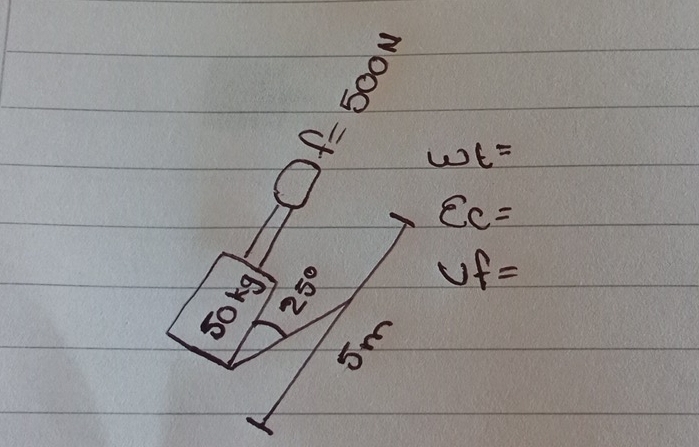 f= 500N
wt=
Ec=
Vf=
50kg
25°
5m